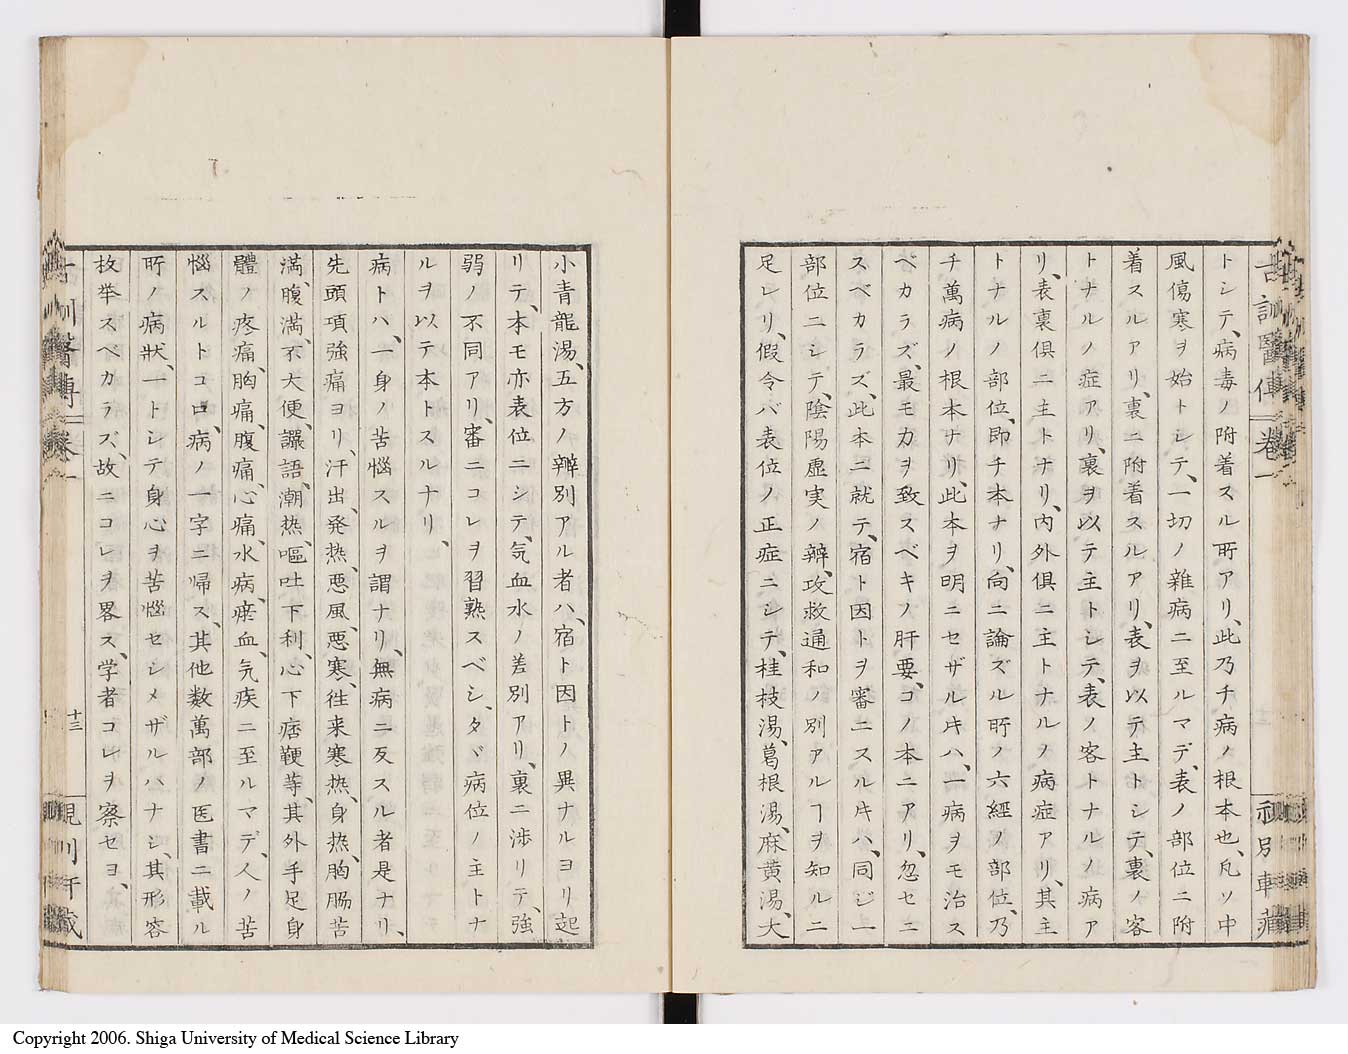 古訓醫傳 卷一
トシテ、病毒ノ附着スル所アリ、此乃チ病ノ根本也、凡ソ中
風傷寒ヲ始トシテ、一切ノ雜病ニ至ルマデ、表ノ部位ニ附
着スルアリ、裏ニ附着スルアリ、表ヲ以テ主トシテ、裏ノ客
トナルノ症アリ、裏ヲ以テ主トシテ、表ノ客トナルノ病ア
リ、表裏倶ニ主トナリ、内外倶ニ主トナルノ病症アリ、其主
トナルノ部位、即チ本ナリ、向ニ論ズル所ノ六經ノ部位、乃
チ萬病ノ根本ナリ、此本ヲ明ニセザル𪜈ハ、一病ヲモ治ス
ベカラズ、最モ力ヲ致スベキノ肝要、コノ本ニアリ、忽セニ
スベカラズ、此本ニ就テ、宿ト因トヲ審ニスル𪜈ハ、同ジ一
部位ニシテ、陰陽虚実ノ辨、攻救通和ノ別アルヿヲ知ルニ
足レリ、假令バ表位ノ正症ニシテ、桂枝湯、葛根湯、麻黄湯、大
小青龍湯、五方ノ辨別アル者ハ、宿ト因トノ異ナルヨリ起
リテ、本モ亦表位ニシテ、気血水ノ差別アリ、裏ニ渉リテ、強
弱ノ不同アリ、審ニコレヲ習熟スベシ、タヾ病位ノ主トナ
ルヲ以テ本トスルナリ、
病トハ、一身ノ苦惱スルヲ謂ナリ、無病ニ反スル者是ナリ、
先頭項強痛ヨリ、汗出、発熱、悪風、悪寒、往来寒熱、身熱、胸脇苦
満、腹満、不大便、譫語、潮熱、嘔吐、下利、心下痞鞕等、其外手足身
體ノ疼痛、胸痛、腹痛、心痛、水病、瘀血、気疾ニ至ルマデ、人ノ苦
惱スルトコロ、病ノ一字ニ帰ス、其他数萬部ノ医書ニ載ル
所ノ病狀、一トシテ身心ヲ苦惱セシメザルハナシ、其形容
枚挙スベカラズ、故ニコレヲ畧ス、学者コレヲ察セヨ、
十三
Copyright 2006. Shiga University of Medical Science Library